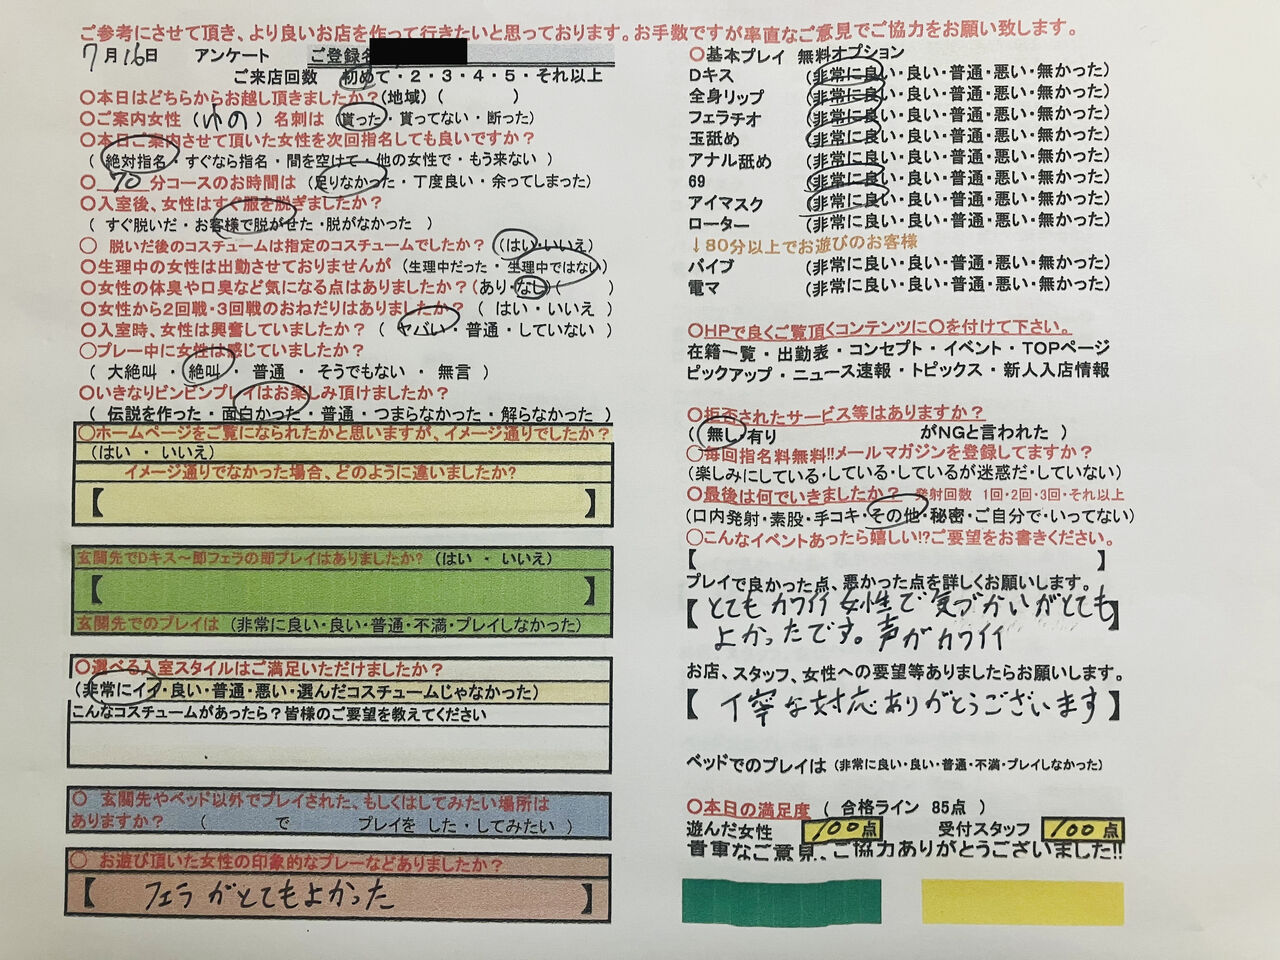 ご参考にさせて頂き、より良いお店を作って行きたいと思っております。お手数ですが率直なご意見でご協力をお願い致します。
7月16日 アンケート ご登録名
ご来店回数 初めて・2・3・4・5・それ以上
〇本日はどちらからお越し頂きましたか?(地域) ( )
〇ご案内女性 (ゆの) 名刺は (貰った・貰ってない・断った)
〇本日ご案内させて頂いた女性を次回指名しても良いですか?
( 絶対指名・すぐなら指名・間を空けて・他の女性で・もう来ない )
〇 70 分コースのお時間は (足りなかった・丁度良い・余ってしまった)
〇入室後、女性はすぐ服を脱ぎましたか?
( すぐ脱いだ・お客様で脱がせた・脱がなかった )
〇 脱いだ後のコスチュームは指定のコスチュームでしたか? (はい・いいえ)
〇生理中の女性は出勤させておりませんが (生理中だった・生理中ではない)
〇女性の体臭や口臭など気になる点はありましたか?(あり・なし)( )
〇女性から2回戦・3回戦のおねだりはありましたか? ( はい・いいえ )
〇入室時、女性は興奮していましたか? ( ヤバい・普通・していない )
〇プレー中に女性は感じていましたか?
( 大絶叫・絶叫・ 普通 ・そうでもない ・ 無言 )
〇いきなりビンビンプレイはお楽しみ頂けましたか?
( 伝説を作った・面白かった・普通・つまらなかった・解らなかった )
〇ホームページをご覧になられたかと思いますが、イメージ通りでしたか?
(はい ・ いいえ)
イメージ通りでなかった場合、どのように違いましたか?
【 】
玄関先でDキス～即フェラの即プレイはありましたか? (はい ・ いいえ)
【 】
玄関先でのプレイは (非常に良い・良い・普通・不満・プレイしなかった)
〇選べる入室スタイルはご満足いただけましたか?
(非常にイイ・良い・普通・悪い・選んだコスチュームじゃなかった)
こんなコスチュームがあったら?皆様のご要望を教えてください
〇 玄関先やベッド以外でプレイされた、もしくはしてみたい場所は
ありますか? ( で プレイを した・してみたい )
〇 お遊び頂いた女性の印象的なプレーなどありましたか?
【 フェラがとてもよかった 】
〇基本プレイ 無料オプション
Dキス (非常に良い・良い・普通・悪い・無かった)
全身リップ (非常に良い・良い・普通・悪い・無かった)
フェラチオ (非常に良い・良い・普通・悪い・無かった)
玉舐め (非常に良い・良い・普通・悪い・無かった)
アナル舐め (非常に良い・良い・普通・悪い・無かった)
69 (非常に良い・良い・普通・悪い・無かった)
アイマスク (非常に良い・良い・普通・悪い・無かった)
ローター (非常に良い・良い・普通・悪い・無かった)
↓80分以上でお遊びのお客様
バイブ (非常に良い・良い・普通・悪い・無かった)
電マ (非常に良い・良い・普通・悪い・無かった)
〇HPで良くご覧頂くコンテンツに〇を付けて下さい。
在籍一覧・出勤表・コンセプト・イベント・TOPページ
ピックアップ・ニュース速報・トピックス・新人入店情報
〇拒否されたサービス等はありますか?
( 無し・有り がNGと言われた )
〇毎回指名料無料!!メールマガジンを登録してますか?
(楽しみにしている・している・しているが迷惑だ・していない)
〇最後は何でいきましたか? 発射回数 1回・2回・3回・それ以上
(口内発射・素股・手コキ・その他・秘密・ご自分で・いってない)
〇こんなイベントあったら嬉しい!?ご要望をお書きください。
【 】
プレイで良かった点、悪かった点を詳しくお願いします。
【とてもカワイイ女性で気づかいがとても
よかったです。声がカワイイ 】
お店、スタッフ、女性への要望等ありましたらお願いします。
【 丁寧な対応ありがとうございます 】
ベッドでのプレイは (非常に良い・良い・普通・不満・プレイしなかった)
〇本日の満足度 ( 合格ライン 85点 )
遊んだ女性 100点 受付スタッフ 100点
貴重なご意見、ご協力ありがとうございました!!